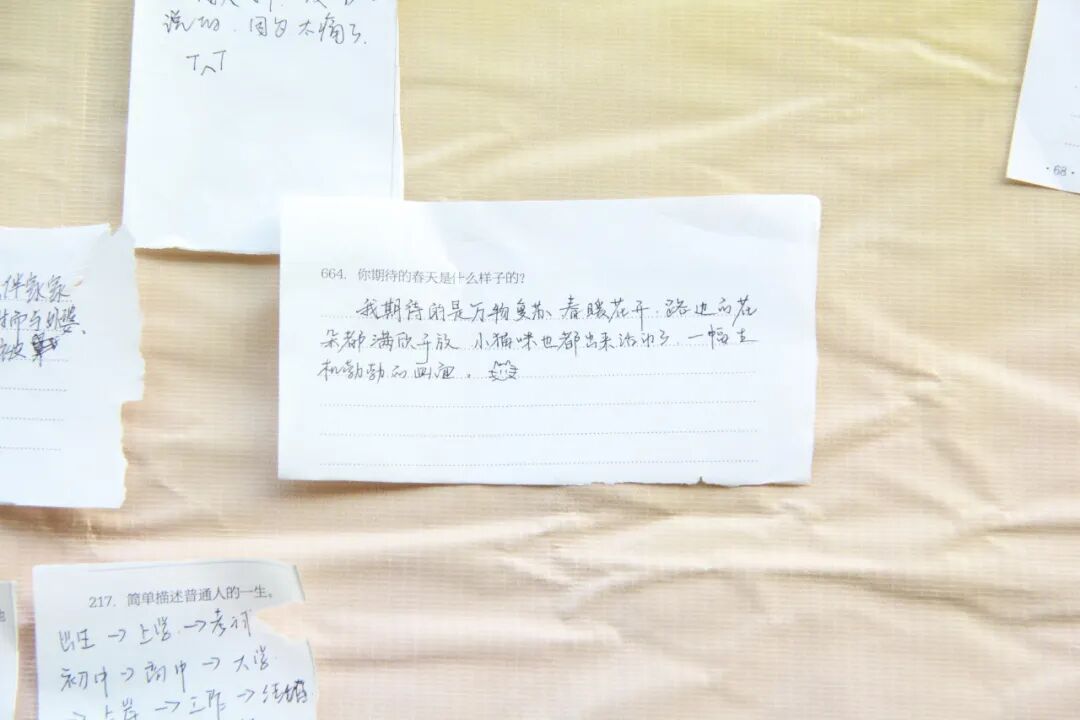 说的,因为太痛了.
T^T
·68·
664. 你期待的春天是什么样子的?
我期待的是万物复苏、春暖花开,路边的花
朵都满欣子放 小猫咪也都出来活动了,一幅生
机勃勃的画面。
伴家家
217. 简单描述普通人的一生。
出生 → 上学 → 考试
初中 → 高中 → 大学
→ 上岸 → 工作 → 结婚